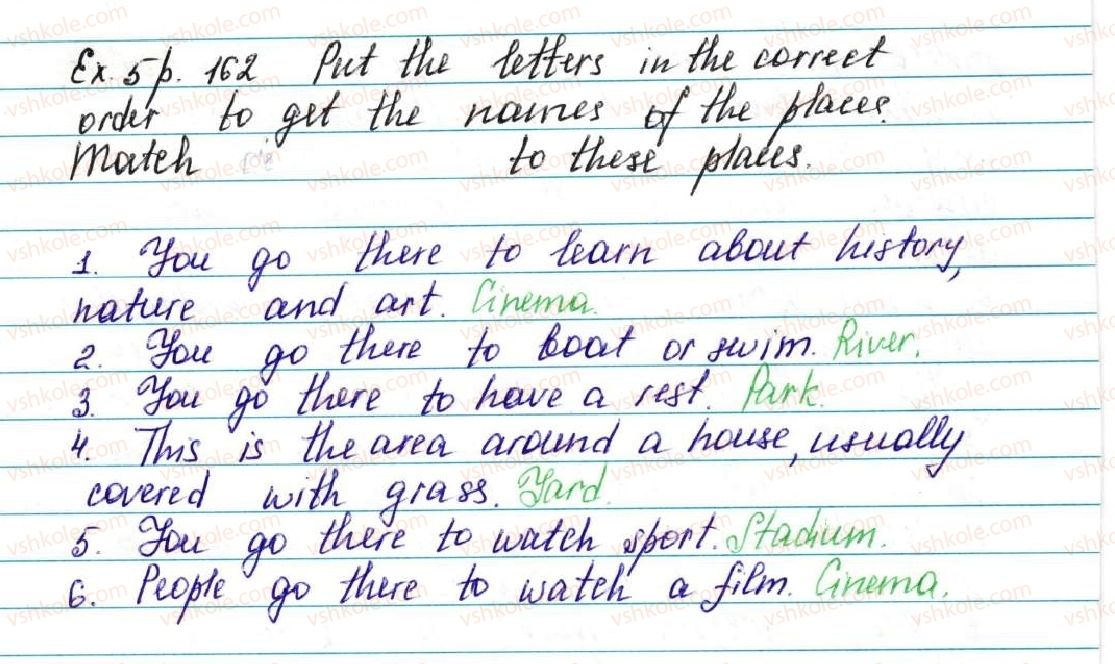 Ex. 5 p. 162 Put the letters in the correct
order to get the names of the places.
Match to these places.
1. You go there to learn about history,
nature and art. Cinema.
2. You go there to boat or swim. River.
3. You go there to have a rest. Park.
4. This is the area around a house, usually
covered with grass. Yard.
5. You go there to watch sport. Stadium.
6. People go there to watch a film. Cinema.